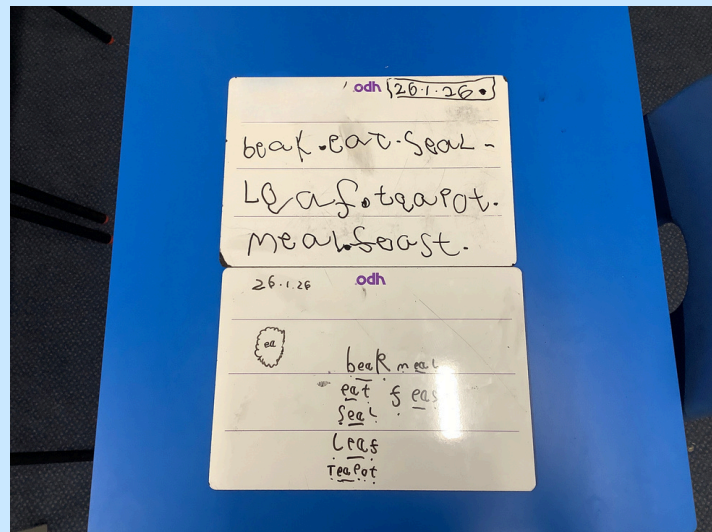 odh 26.1.26.
beak.eat.seaL-
Leaf.teaPot.
meaL.feast.
26.1.26 odh
ea
beak meal
eat feas
SeaL
Leaf
TeaPot